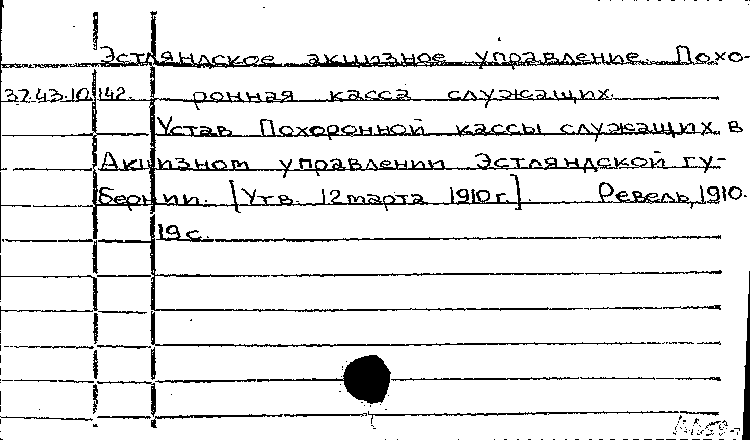 Эстляндское акцизное управление. Похо-
37.43.10.142. ронная касса служащих.
Устав Похоронной кассы служащих в
Акцизном управлении Эстляндской гу-
бернии. [Утв. 12 марта 1910 г.] Ревель, 1910.
19 с.